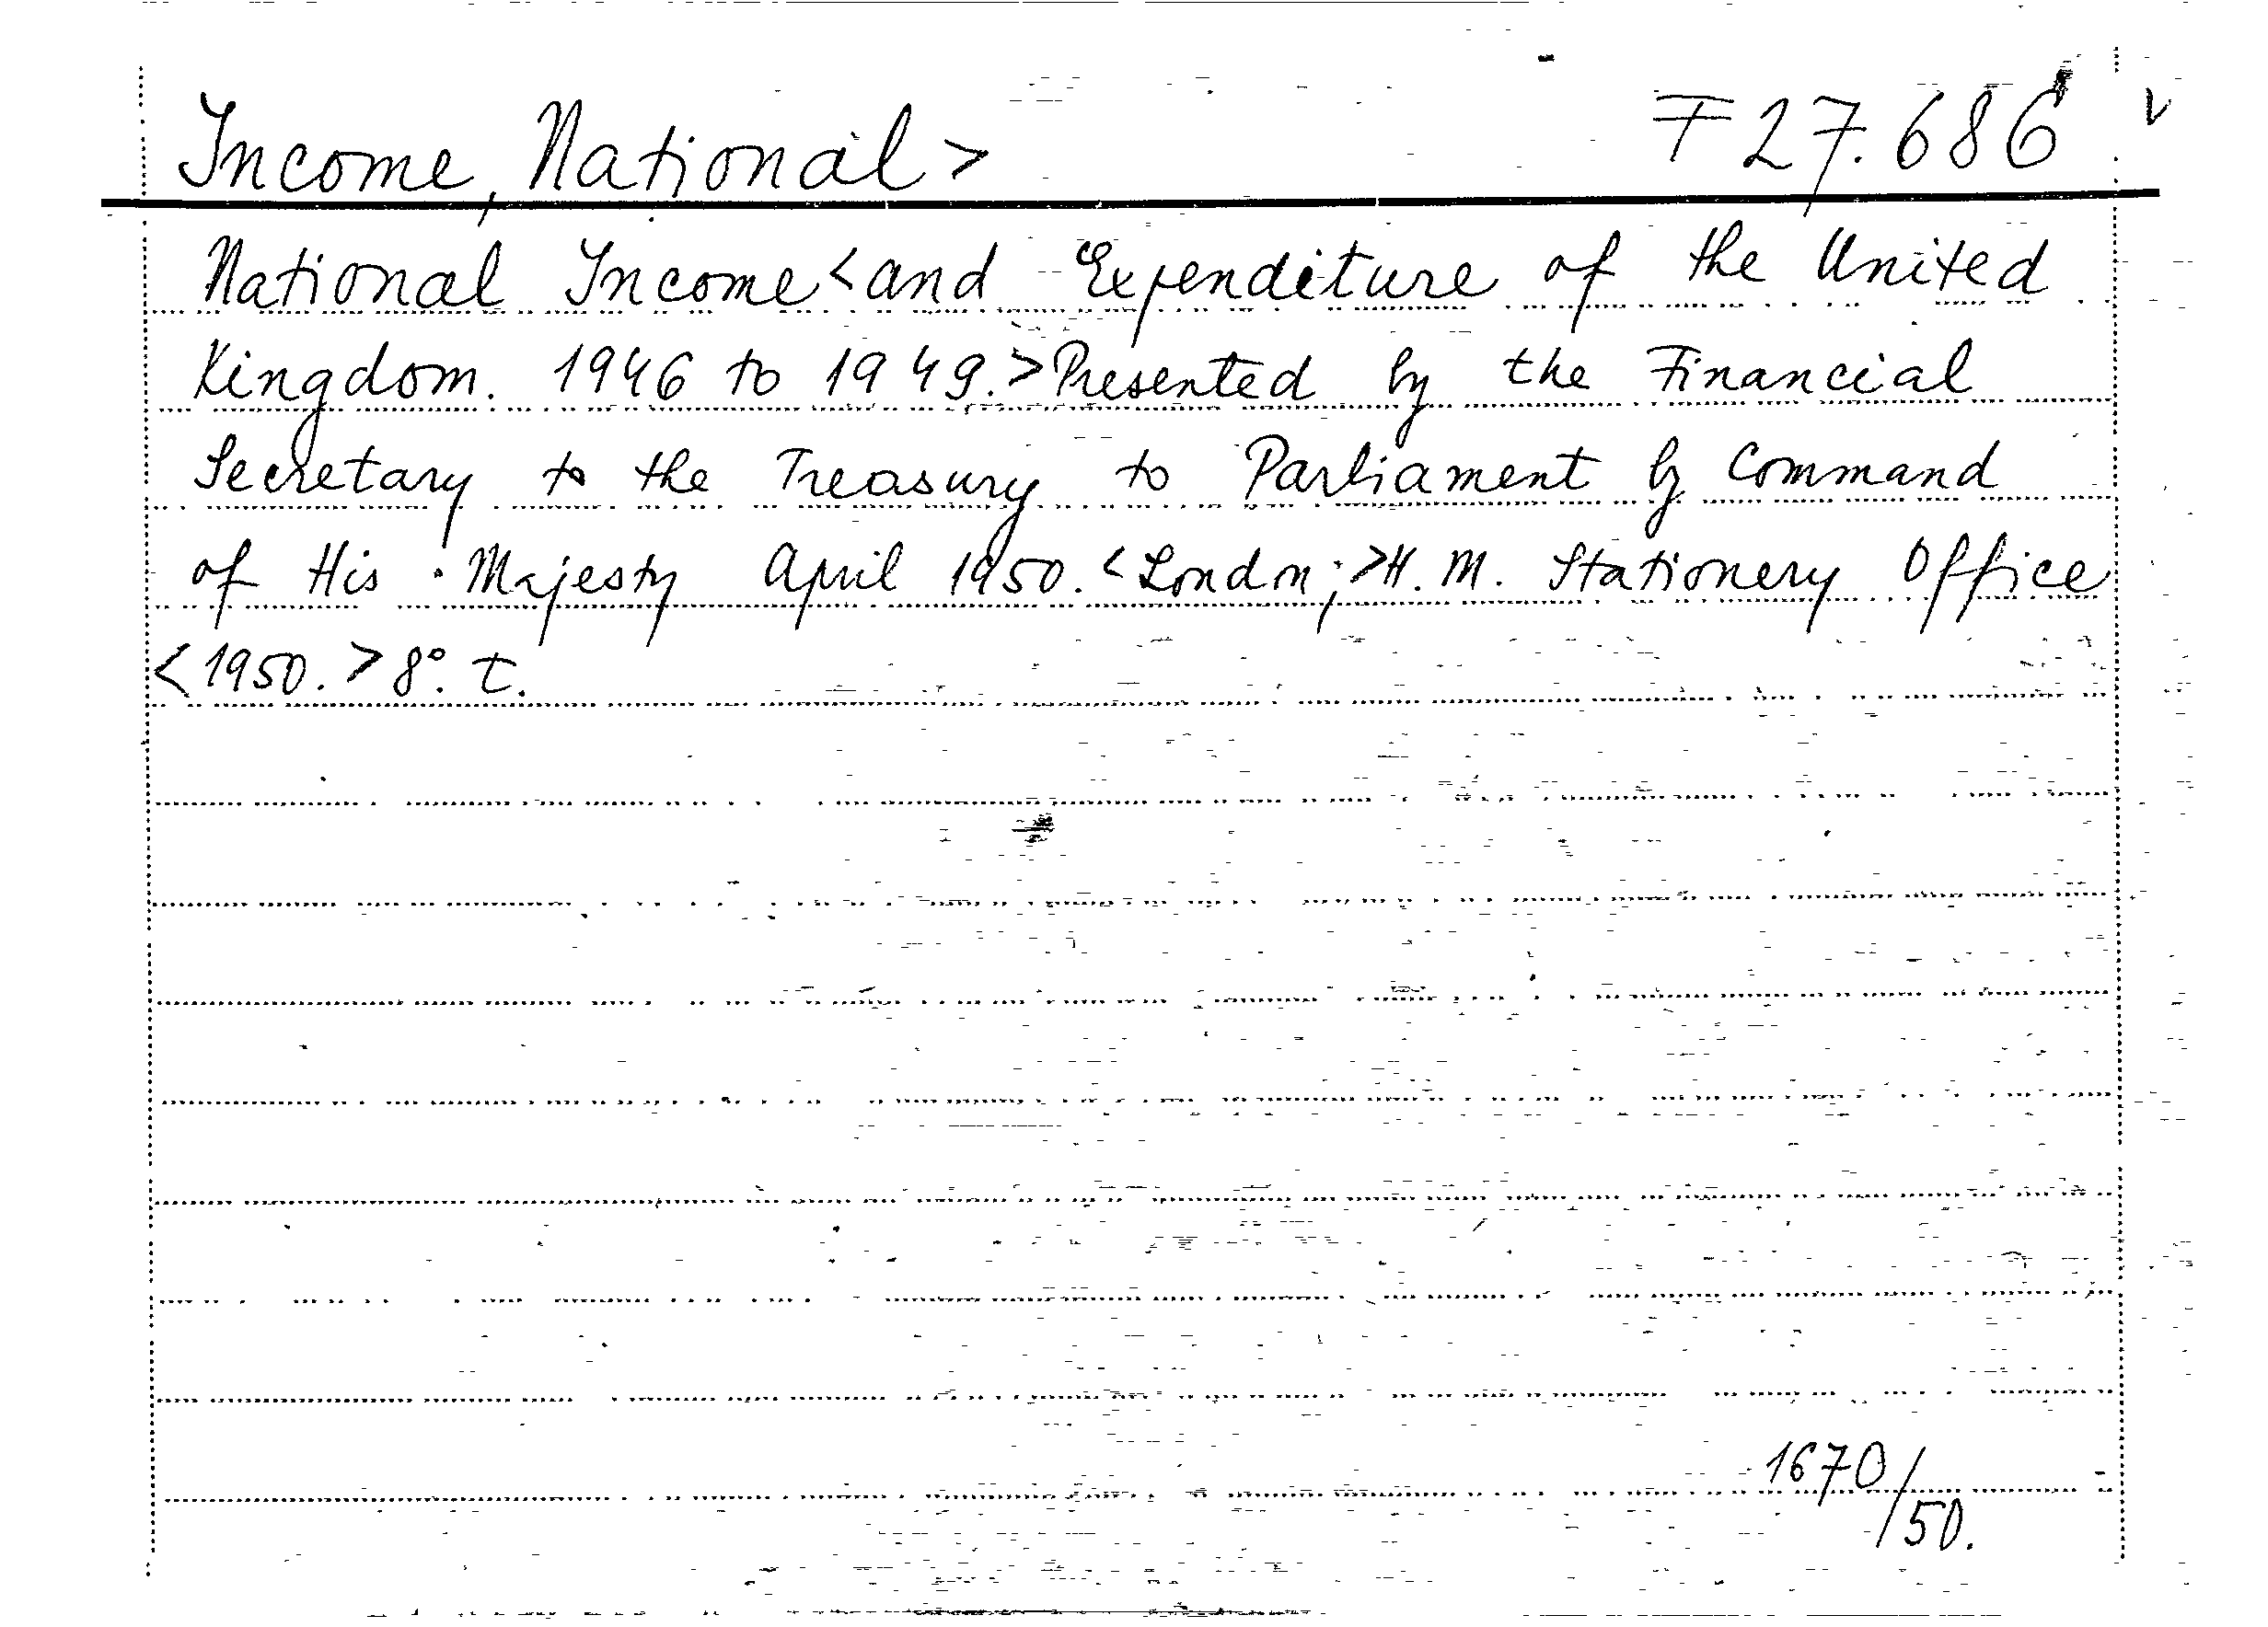 Income, National > F 27.686 v
National Income < and Expenditure of the United
Kingdom. 1946 to 1949. > Presented by the Financial
Secretary to the Treasury to Parliament by Command
of His Majesty April 1950. < London; > H. M. Stationery Office
< 1950. > 8°. t.
1670/50.